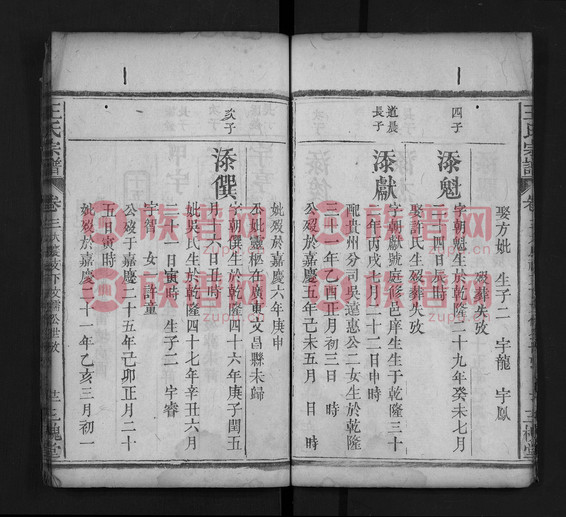 王氏宗譜
娶方妣 生子二 宇龍 宇鳳
歿葬失攷
四子
添魁
字朝魁生於乾隆二十九年癸未七月
二十四日辰時
娶許氏生歿葬失攷
道晨
長子
添獻
字朝獻號庭修邑庠生生于乾隆三十
一年丙戌七月二十二日申時
配貴州分司吳遠惠公二女生於乾隆
三十一年乙酉正月初三日 時
公歿於嘉慶五年己未五月 日 時
妣歿於嘉慶六年庚申
公妣靈柩在廣東文昌縣未歸
次子
添僎
字朝僎生於乾隆四十六年庚子閏五
月十六日丑時
妣吳氏生於乾隆四十七年辛丑六月
二十一日寅時 生子二 宇睿
宇智 女一 許童
公歿于嘉慶二十五年己卯正月二十
五日寅時
妣歿於嘉慶二十一年乙亥三月初一
王氏宗譜
卷三
三槐堂
族譜网
zupu.cn